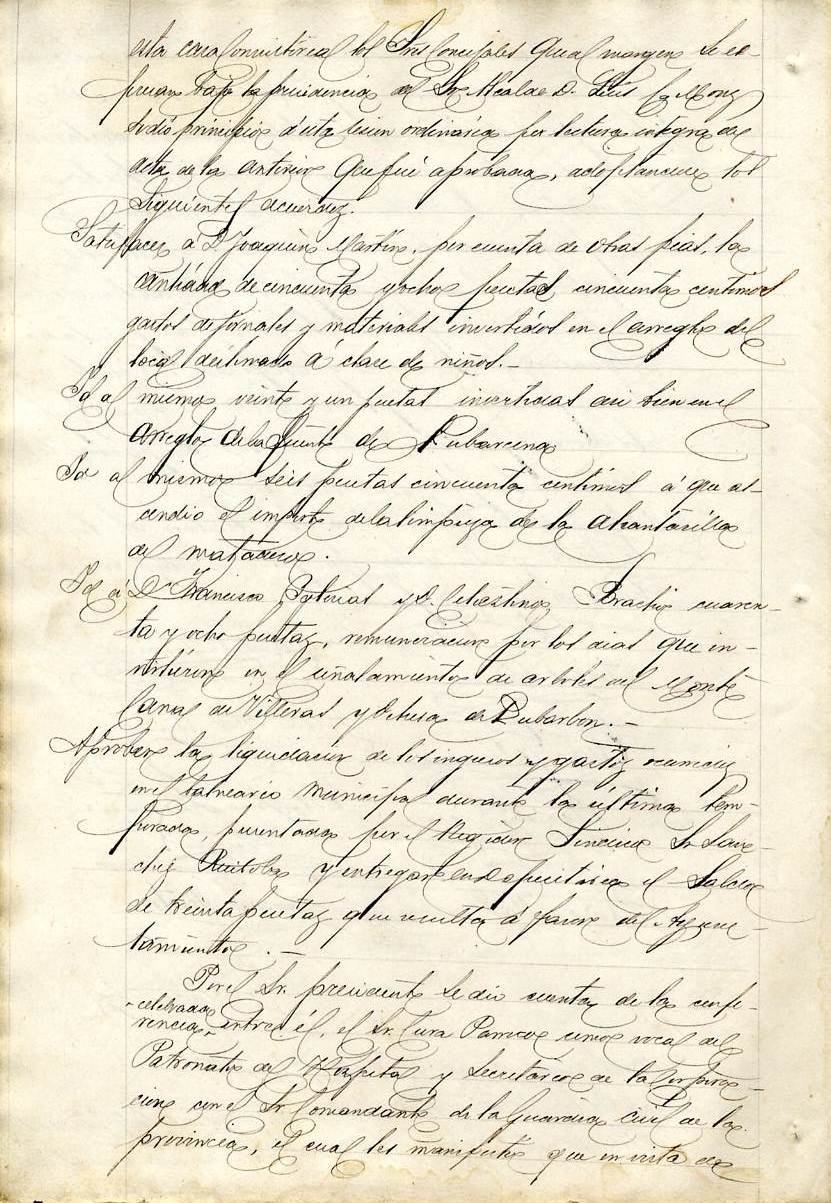 esta casa Consistorial los Sres Concejales que al margen se ex-
presan bajo la presidencia del Sr Alcalde D. Luis
se dió principio á esta sesión ordinaria por lectura integra del
acta de la anterior que fué aprobada, adoptandose los
siguientes acuerdos.
Satisfacer á D. Joaquin Martin, por cuenta de obras pias, la
cantidad de cincuenta y ocho pesetas cincuenta centimos
gastos de jornales y materiales invertidos en el arreglo del
local destinado á clase de niños.-
Id al mismo veinte y un pesetas invertidas asi bien en el
arreglo de la fuente de
Id al mismo seis pesetas cincuenta centimos á que as-
cendio el importe de la limpieza de la alcantarilla
del matadero.
Id á D. Francisco y D. Celestino cuaren-
ta y ocho pesetas, remuneracion por los dias que in-
virtieron en el señalamiento de arboles del Monte
Canal de Villeras y Dehesa de .-
Aprobar la liquidación de los ingresos y gastos ocurridos
en el balneario municipal durante la última tem-
porada, presentada por el Regidor Sindico Sr San-
chez y entregar en Depositaria el Saldo
de treinta pesetas que resulta á favor del Ayun-
tamiento.-
Por el Sr. presidente se dio cuenta de la confe-
celebrada
rencia entre él, el Sr. Cura Parroco como vocal del
Patronato del Hospital y Secretario de la Corpora-
cion con el Sr Comandante de la Guardia Civil de la
provincia, el cual les manifestó que en vista de